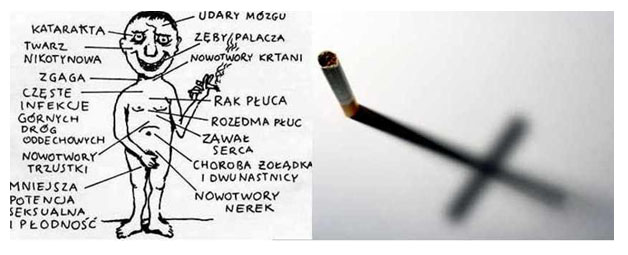 UDARY MÓZGU
KATARAKTA
ZĘBY PALACZA
TWARZ
NIKOTYNOWA
NOWOTWORY KRTANI
ZGAGA
CZĘSTE
INFEKCJE
GÓRNYCH
DRÓG
ODDECHOWYCH
RAK PŁUCA
ROZEDMA PŁUC
ZAWAŁ
SERCA
NOWOTWORY
TRZUSTKI
CHOROBA ŻOŁĄDKA
I DWUNASTNICY
MNIEJSZA
POTENCJA
SEKSUALNA
I PŁODNOŚĆ
NOWOTWORY
NEREK